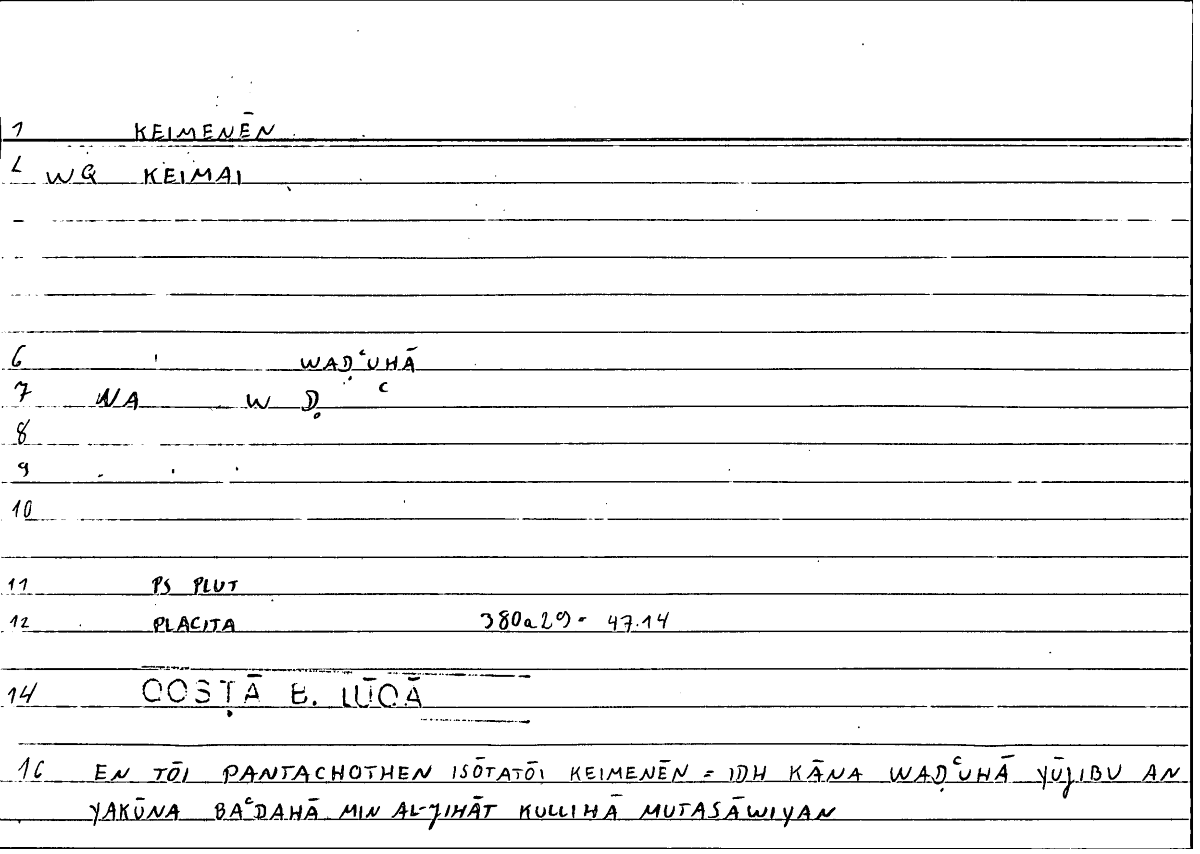 1 KEIMENĒN
2 WQ KEIMAI
6 WAḌʿUHĀ
7 NA W Ḍ ʿ
8
9
10
11 PS PLUT
12 PLACITA 380a29 = 47.14
14 QOSṬĀ B. LŪQĀ
16 EN TŌI PANTACHOTHEN ISŌTATŌI KEIMENĒN = IDH KĀNA WAḌʿUHĀ YŪJIBU AN
YAKŪNA BAʿDAHĀ MIN AL-JIHĀT KULLIHĀ MUTASĀWIYAN